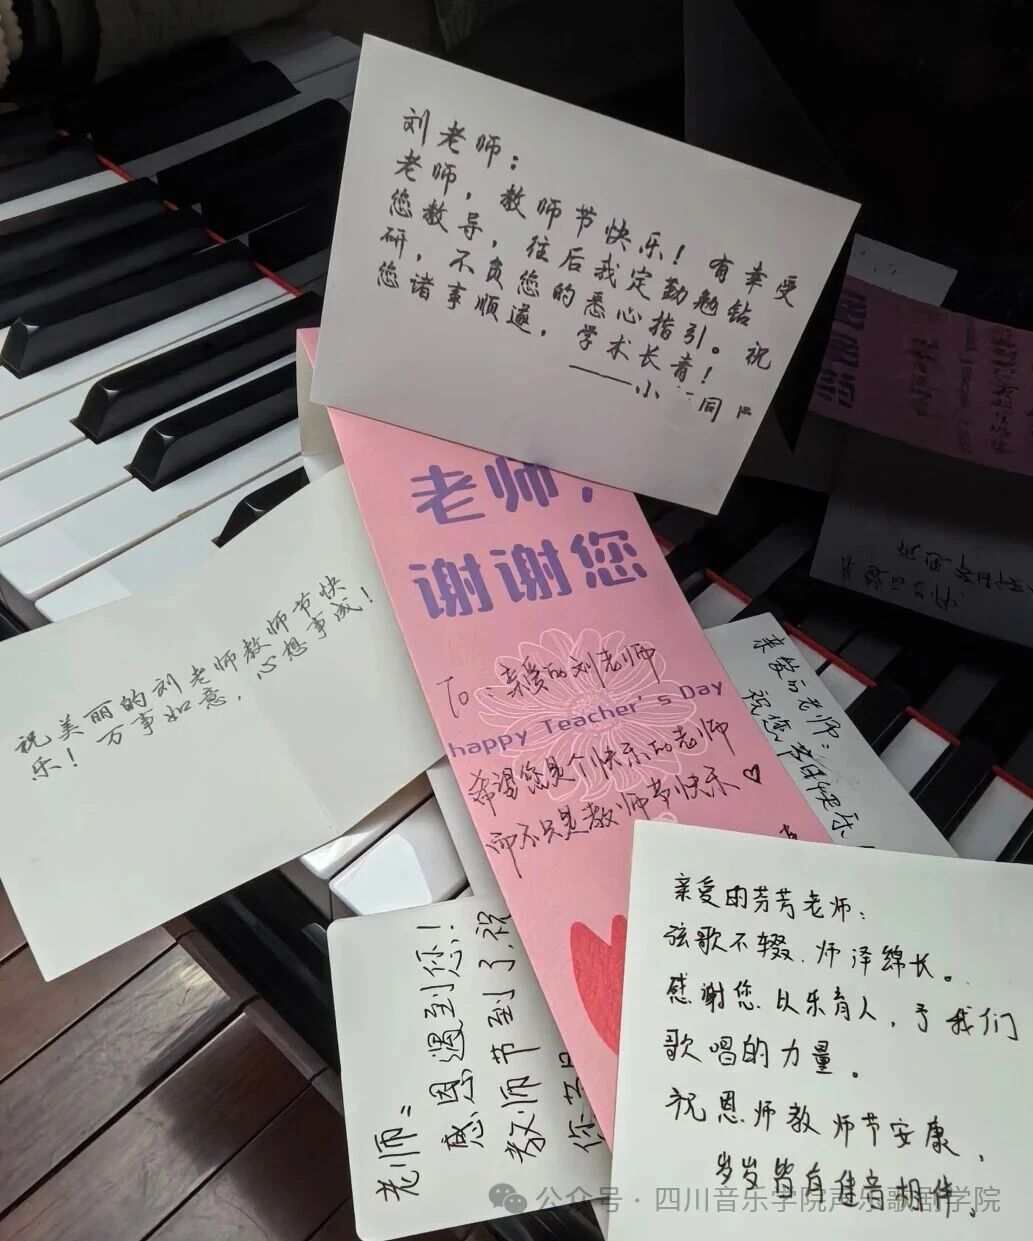 刘老师：
老师，教师节快乐！有幸受
您教导，往后我定勤勉钻
研，不负您的悉心指引。祝
您诸事顺遂，学术长青！
——小 同
老师，
谢谢您
To：亲爱的刘老师
happy Teacher's Day
希望您是个快乐的老师
而不只是教师节快乐♡
祝美丽的刘老师教师节快
乐！万事如意，心想事成！
亲爱的老师：
祝您节日快乐
老师：
感恩遇到您！
教师节到了，祝
亲爱的芳芳老师：
弦歌不辍、师泽绵长。
感谢您以乐育人，予我们
歌唱的力量。
祝恩师教师节安康，
岁岁皆有佳音相伴。
公众号·四川音乐学院声乐歌剧学院